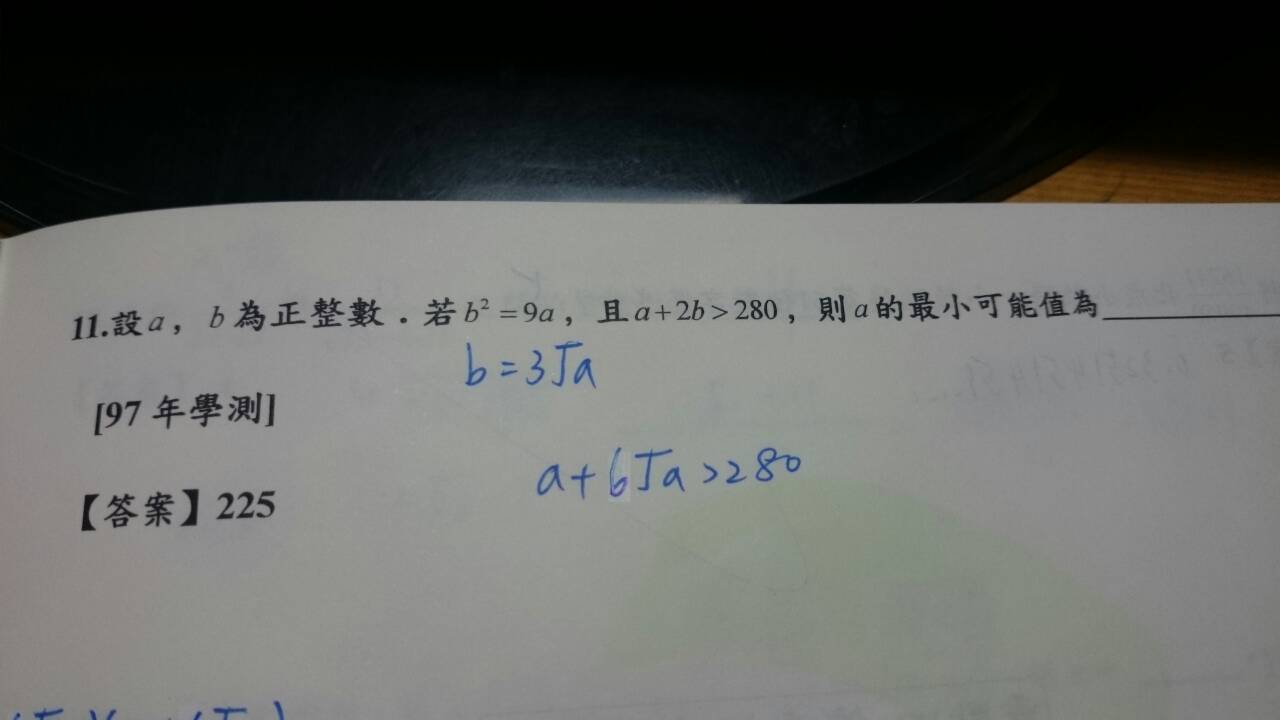 11.設 a，b 為正整數．若 b² = 9a，且 a+2b > 280，則 a 的最小可能值為________
b = 3√a
[97 年學測]
a + 6√a > 280
【答案】225